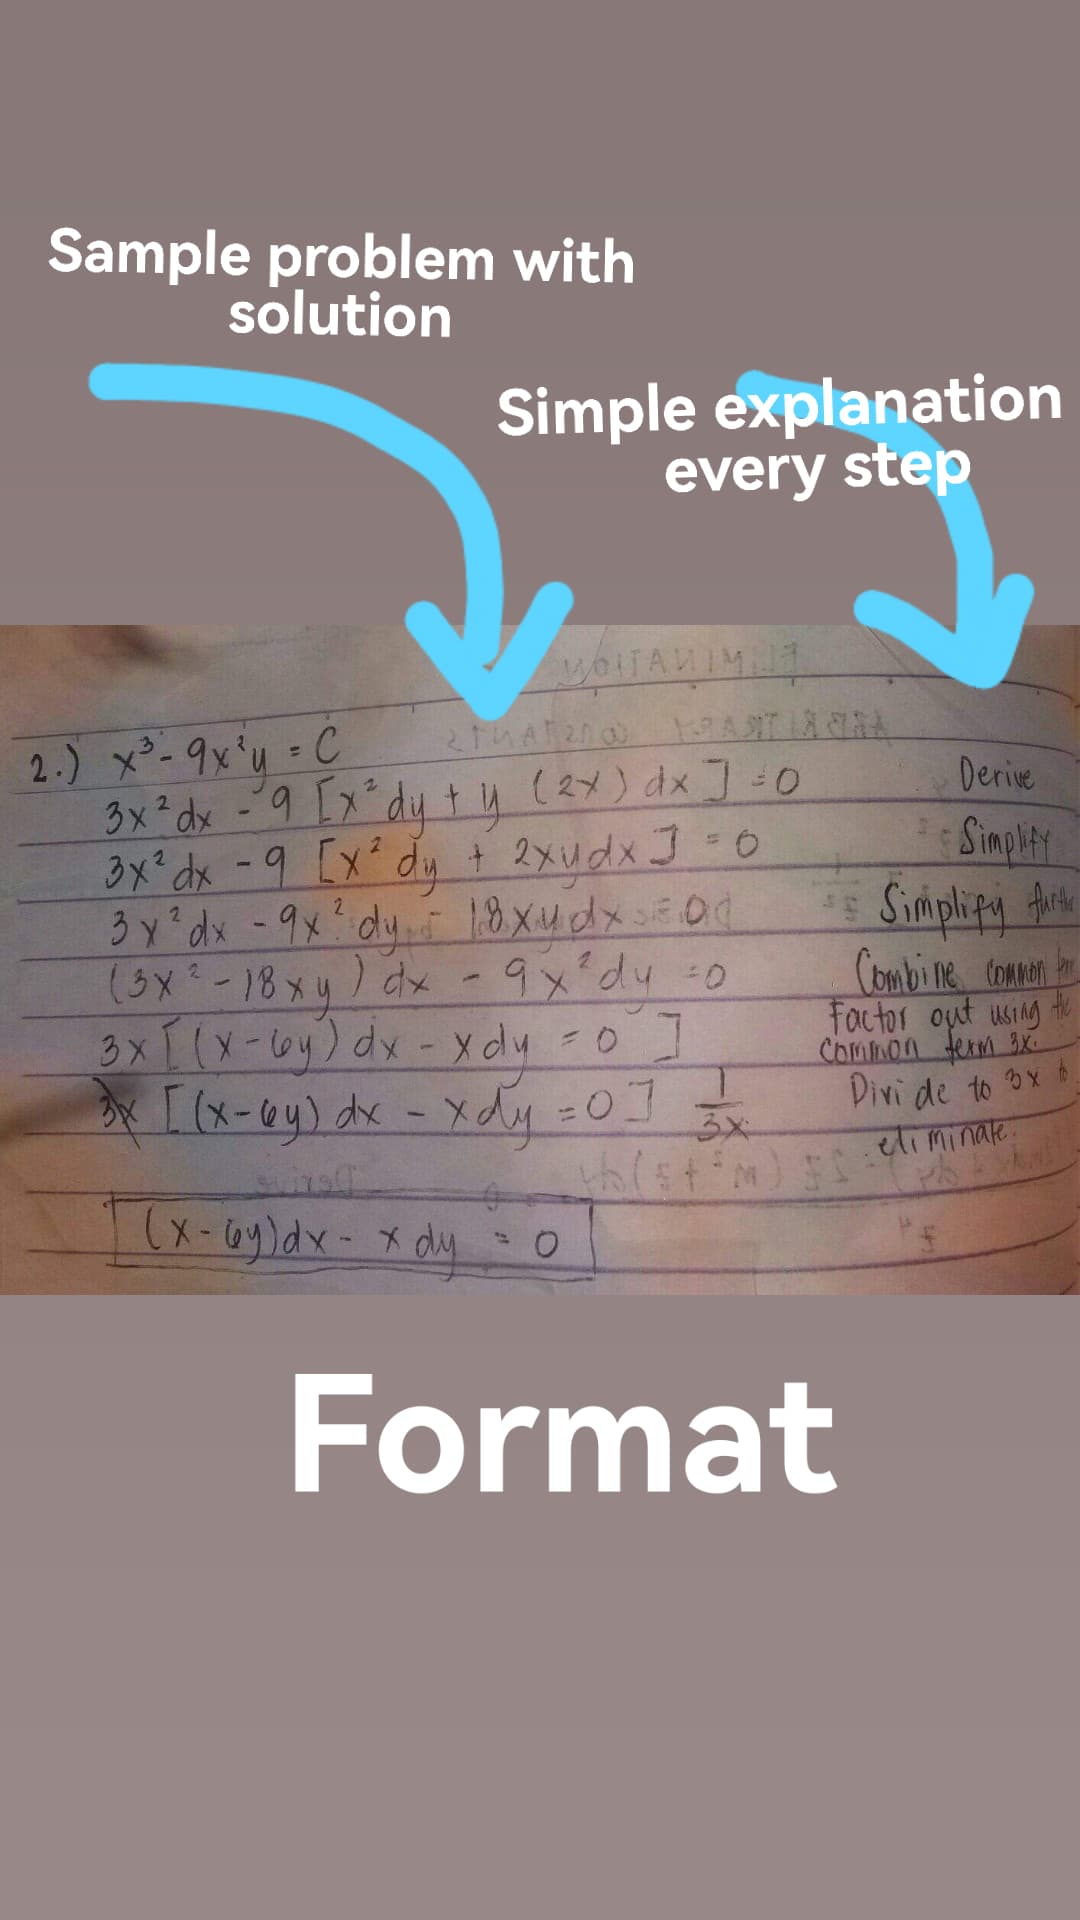 Sample problem with
solution
Simple explanation
every step
2.) x³ - 9x²y = C
3x²dx - 9 [x²dy + y (2x) dx] = 0 Derive
3x²dx - 9 [x²dy + 2xydx] = 0 Simplify
3x²dx - 9x²dy - 18xydx = 0 Simplify further
(3x² - 18xy) dx - 9x²dy = 0 Combine common
3x [(x - 6y) dx - xdy = 0] Factor out using the
common term 3x.
3x [(x - 6y) dx - xdy = 0] 1/3x Divide to 3x to
eliminate.
(x - 6y)dx - xdy = 0
Format